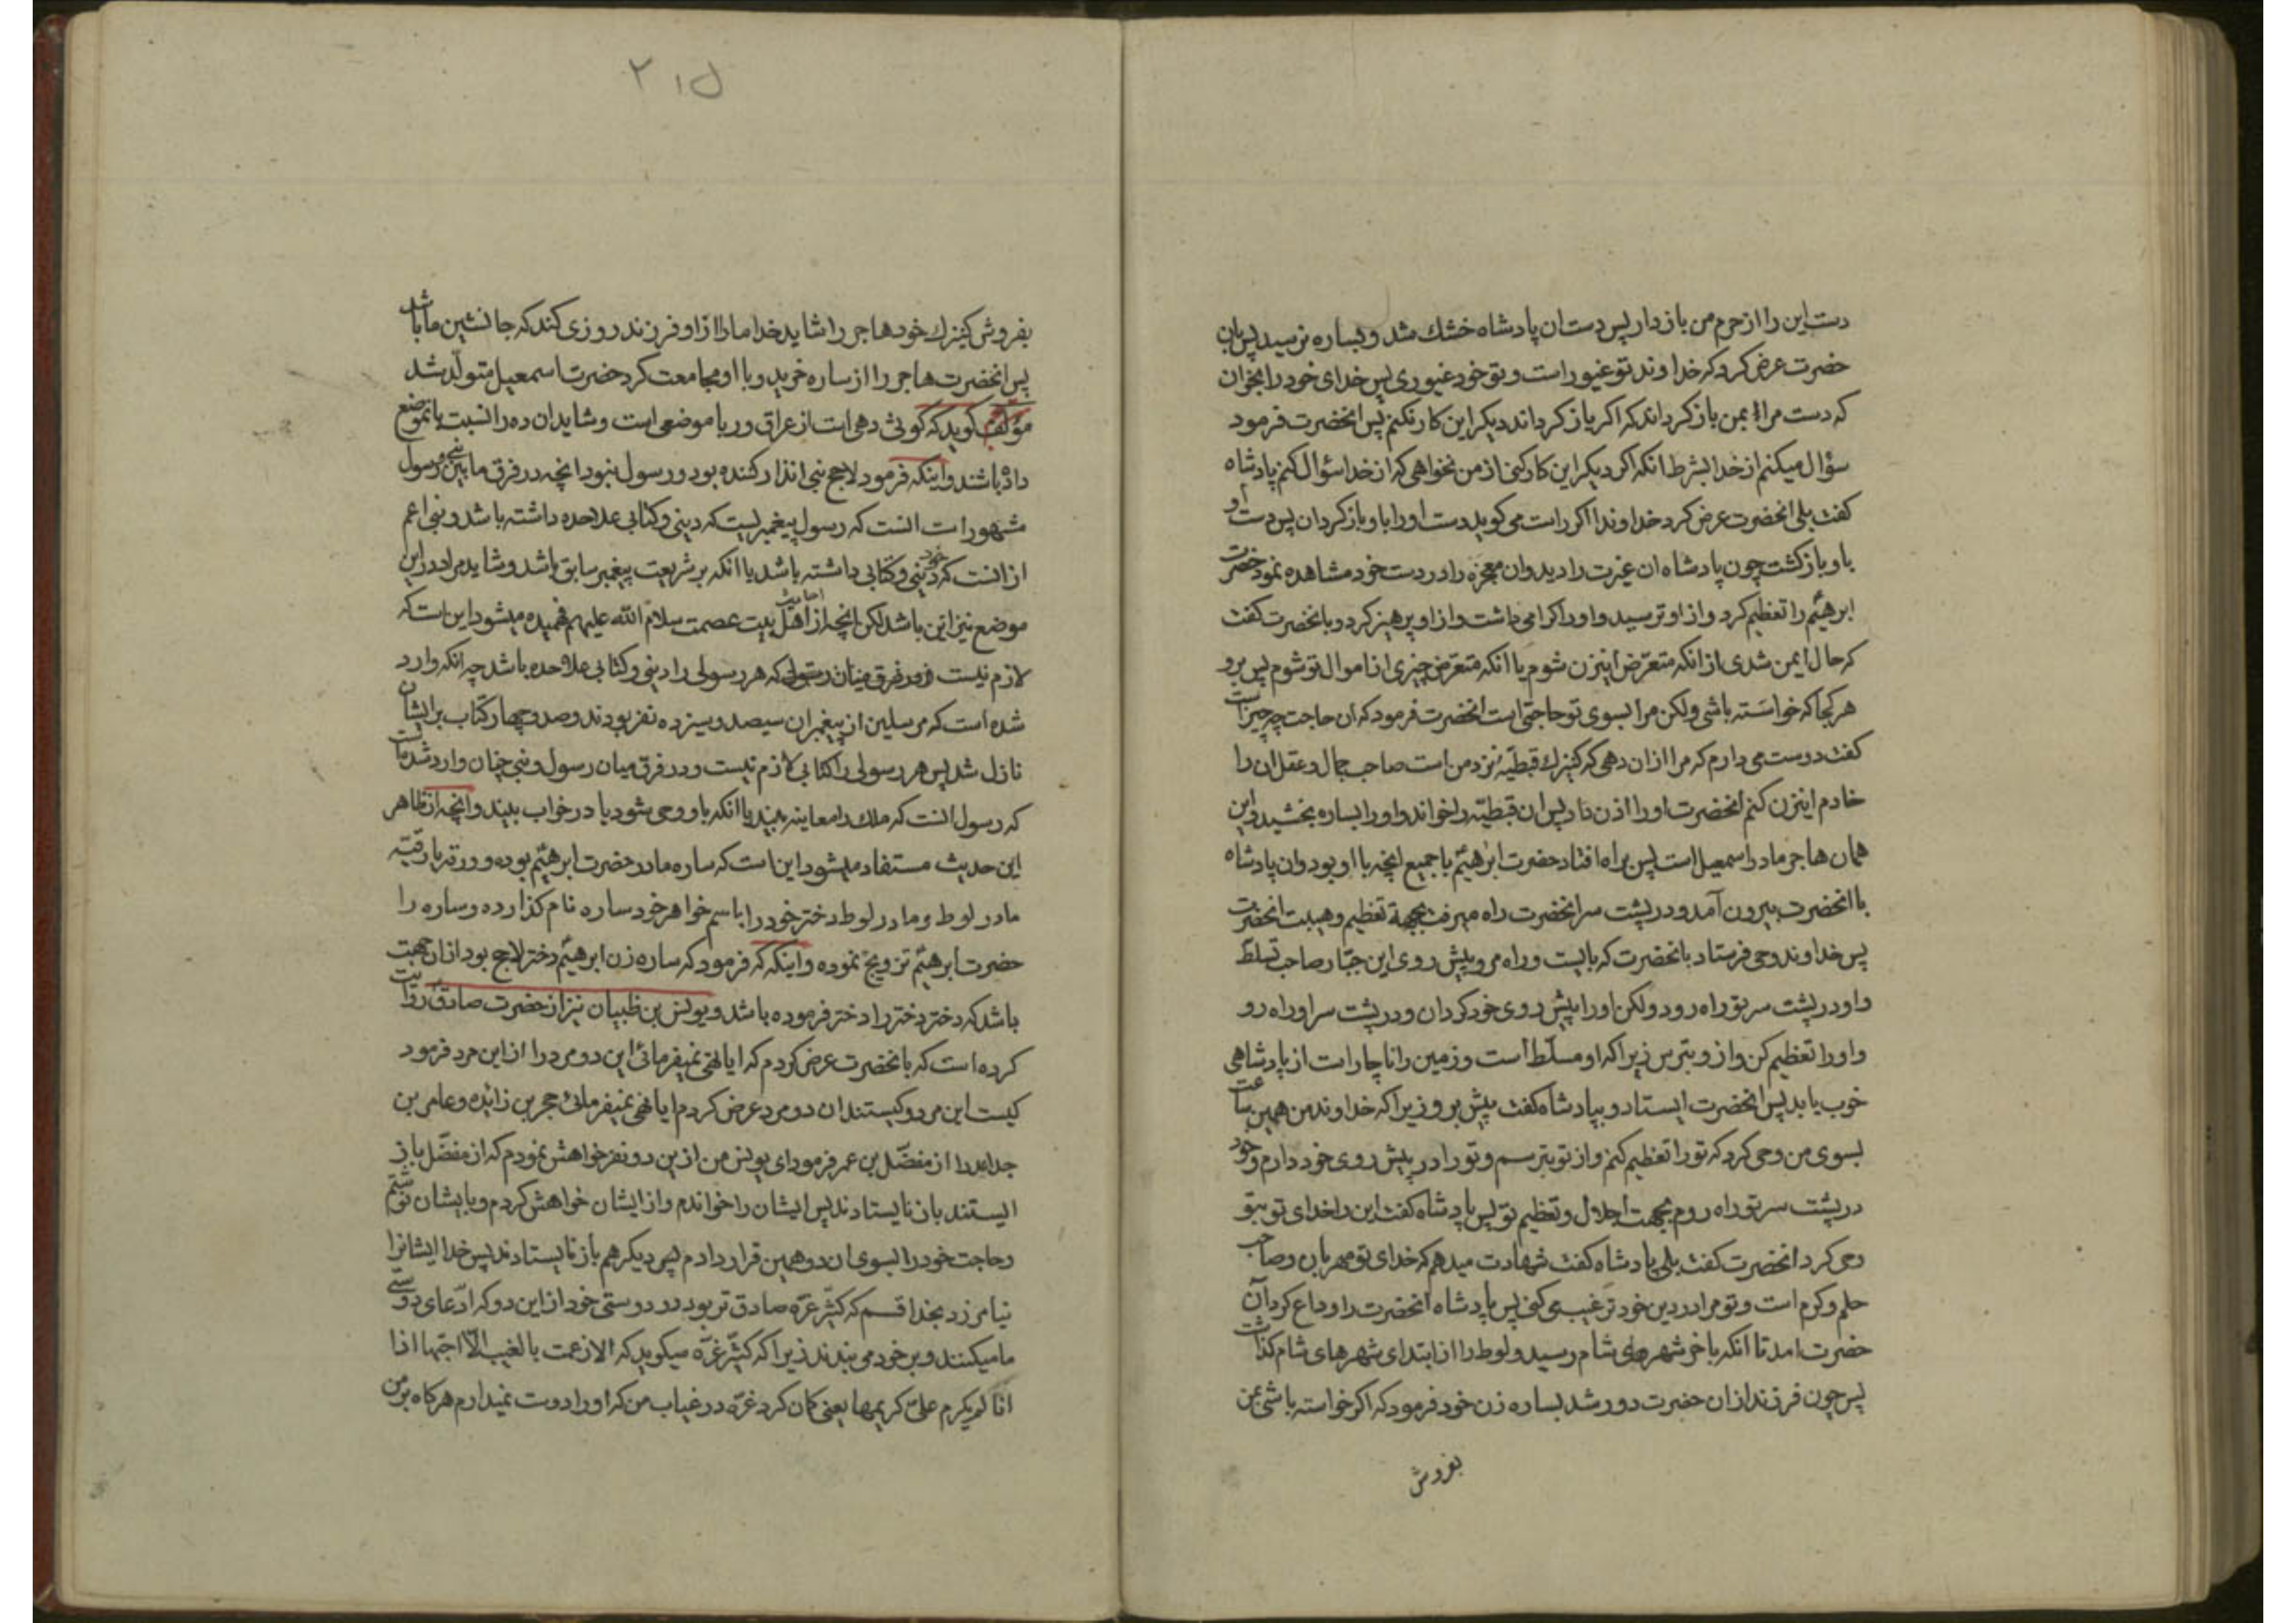 دست این را از حرم من باز دار پس دست ان پادشاه خشك شد و بساره نرسید پس بان
حضرت عرض کرد که خداوند تو غیور است و تو خود غیوری پس خدای خود را بخوان
که دست مرا بمن باز کرداند که اکر باز کرداند دیکر این کار نکنم پس انحضرت فرمود
سؤال میکنم از خدا بشرط انکه اکر دیکر این کار کنی از من نخواهی که از خدا سؤال کنم پادشاه
کفت بلی انحضرت عرض کرد خداوندا اکر راست می کوید دست او را باو باز کردان پس دست او
باو باز کشت چون پادشاه ان غیرت را دید و ان معجزه را در دست خود مشاهده نمود حضرت
ابرهیم را تعظیم کرد و از او ترسید و او را کرامی داشت و از او پرهیز کرد و بانحضرت کفت
که حال ایمن شدی از انکه متعرّض اینزن شوم یا انکه متعرّض چیزی از اموال تو شوم پس برو
هر کجا که خواسته باشی ولکن مرا بسوی تو حاجتی است انحضرت فرمود که ان حاجت چه چیز است
کفت دوست می دارم که مرا اذن دهی که کنیزك قبطیّه نزد من است صاحب جمال و عقل ان را
خادم اینزن کنم انحضرت او را اذن داد پس ان قبطیّه را خواند و او را بساره بخشید و این
همان هاجر مادر اسمعیل است پس براه افتاد حضرت ابرهیم با جمیع انچه با او بود و ان پادشاه
با انحضرت بیرون آمد و در پشت سر انحضرت راه میرفت بجهة تعظیم و هیبت انحضرت
پس خداوند وحی فرستاد بانحضرت که بایست و راه مرو پیش روی این جبّار صاحب تسلّط
و او در پشت سر تو راه رود ولکن او را پیش روی خود کردان و در پشت سر او راه رو
و او را تعظیم کن و از و بترس زیرا که او مسلّط است و زمین را ناچار است از پادشاهی
خوب یا بد پس انحضرت ایستاد و بپادشاه کفت پیش برو زیرا که خداوند من همین ساعت
بسوی من وحی کرد که تو را تعظیم کنم و از تو بترسم و تو را در پیش روی خود دارم و خود
در پشت سر تو راه روم بجهت اجلال و تعظیم تو پس پادشاه کفت این را خدای تو بتو
وحی کرد انحضرت کفت بلی پادشاه کفت شهادت میدهم که خدای تو مهربان و صاحب
حلم و کرم است و تو مرا در دین خود ترغیب می کنی پس پادشاه انحضرت را وداع کرد ان
حضرت امد تا انکه باخر شهرهای شام رسید و لوط را از ابتدای شهرهای شام کذاشت
پس چون فرزند از ان حضرت دور شد بساره زن خود فرمود که اکر خواسته باشی بمن
بفروش
بفروش کنیزك خود هاجر را شاید خدا ما را از او فرزند روزی کند که جانشین ما باشد
پس انحضرت هاجر را از ساره خرید و با او مجامعت کرد حضرت اسمعیل متولّد شد
مؤلّف کوید که کوثی دهی است از عراق و ربا موضعی است و شاید ان ده را نسبت بانموضع
داده باشند و اینکه فرمود لاحج نبی انذار کننده بود و رسول نبود انچه در فرق ما بین نبی و رسول
مشهور است انست که رسول پیغمبریست که دینی و کتابی علاحده داشته باشد و نبی اعم
از انست که خود دینی و کتابی داشته باشد یا انکه بر شریعت پیغمبر سابق باشد و شاید مراد در این
موضع نیز این باشد لکن انچه از احادیث اهل بیت عصمت سلام الله علیهم فهمیده میشود این است که
لازم نیست که هر رسولی را دینی و کتابی علاحده باشد چه انکه وارد
شده است که مرسلین از پیغمبران سیصد و سیزده نفر بودند و صد و چهار کتاب بر ایشان
نازل شد پس هر رسولی را کتابی لازم نیست و در فرق میان رسول و نبی چنان وارد شده است
که رسول انست که ملك را معاینه ببیند یا انکه باو وحی شود یا در خواب ببیند و انچه از ظاهر
این حدیث مستفاد میشود این است که ساره مادر حضرت ابرهیم بوده و ورقه یا رقیّه
مادر لوط و مادر لوط دختر خود را باسم خواهر خود ساره نام کذارده و ساره را
حضرت ابرهیم تزویج نموده و اینکه که فرمود که ساره زن ابرهیم دختر لاحج بود از ان جهت
باشد که دختر دختر را دختر فرموده باشد و یونس بن ظبیان نیز از حضرت صادق روایت
کرده است که بانحضرت عرض کردم که ایا نهی نمیفرمائی این دو مرد را از این مرد فرمود
کیست این مرد و کیستند ان دو مرد عرض کردم ایا نهی نمیفرمائی حجر بن زائده و عامر بن
جداعه را از مفضّل بن عمر فرمود ای یونس من از این دو نفر خواهش نمودم که از مفضّل باز
ایستند باز نایستادند پس ایشان را خواندم و از ایشان خواهش کردم و بایشان نوشتم
و حاجت خود را بسوی ان دو همین قرار دادم پس دیکر هم باز نایستادند پس خدا ایشانرا
نیامرزد بخدا قسم که کثیّر عزّه صادق تر بود در دوستی خود از این دو که ادّعای دوستی
ما میکنند و بر خود می بندند زیرا که کثیّر عزّه میکوید که الا زعمت بالغیب الّا احبّها اذا
انا لم یکرم علیّ کریمها یعنی کمان کرد عزّه در غیاب من که او را دوست نمیدارم هر کاه بر من